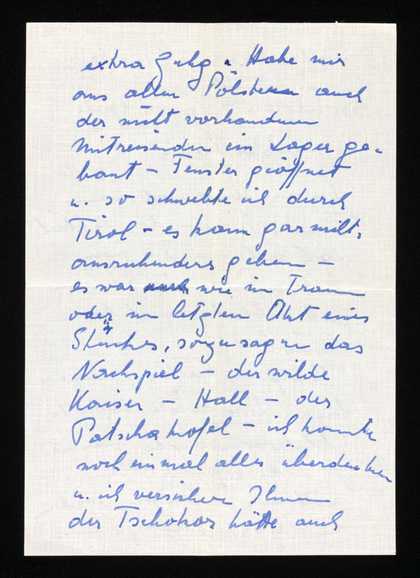 extra
Habe mir
aus allen Pölstern auch
der nicht vorhandenen
Mitreisenden ein Lager ge-
baut – Fenster geöffnet
u. so schwebte ich durch
Tirol – es kann gar nicht
ausruhenders geben –
es war wie im Traum
oder im letzten Akt eines
Stückes, sozusagen das
Nachspiel – der wilde
Kaiser – Hall – der
Patscherkofel – ich konnte
noch einmal alles überdenken
u. ich versichere Ihnen
der Tschokor hätte auch